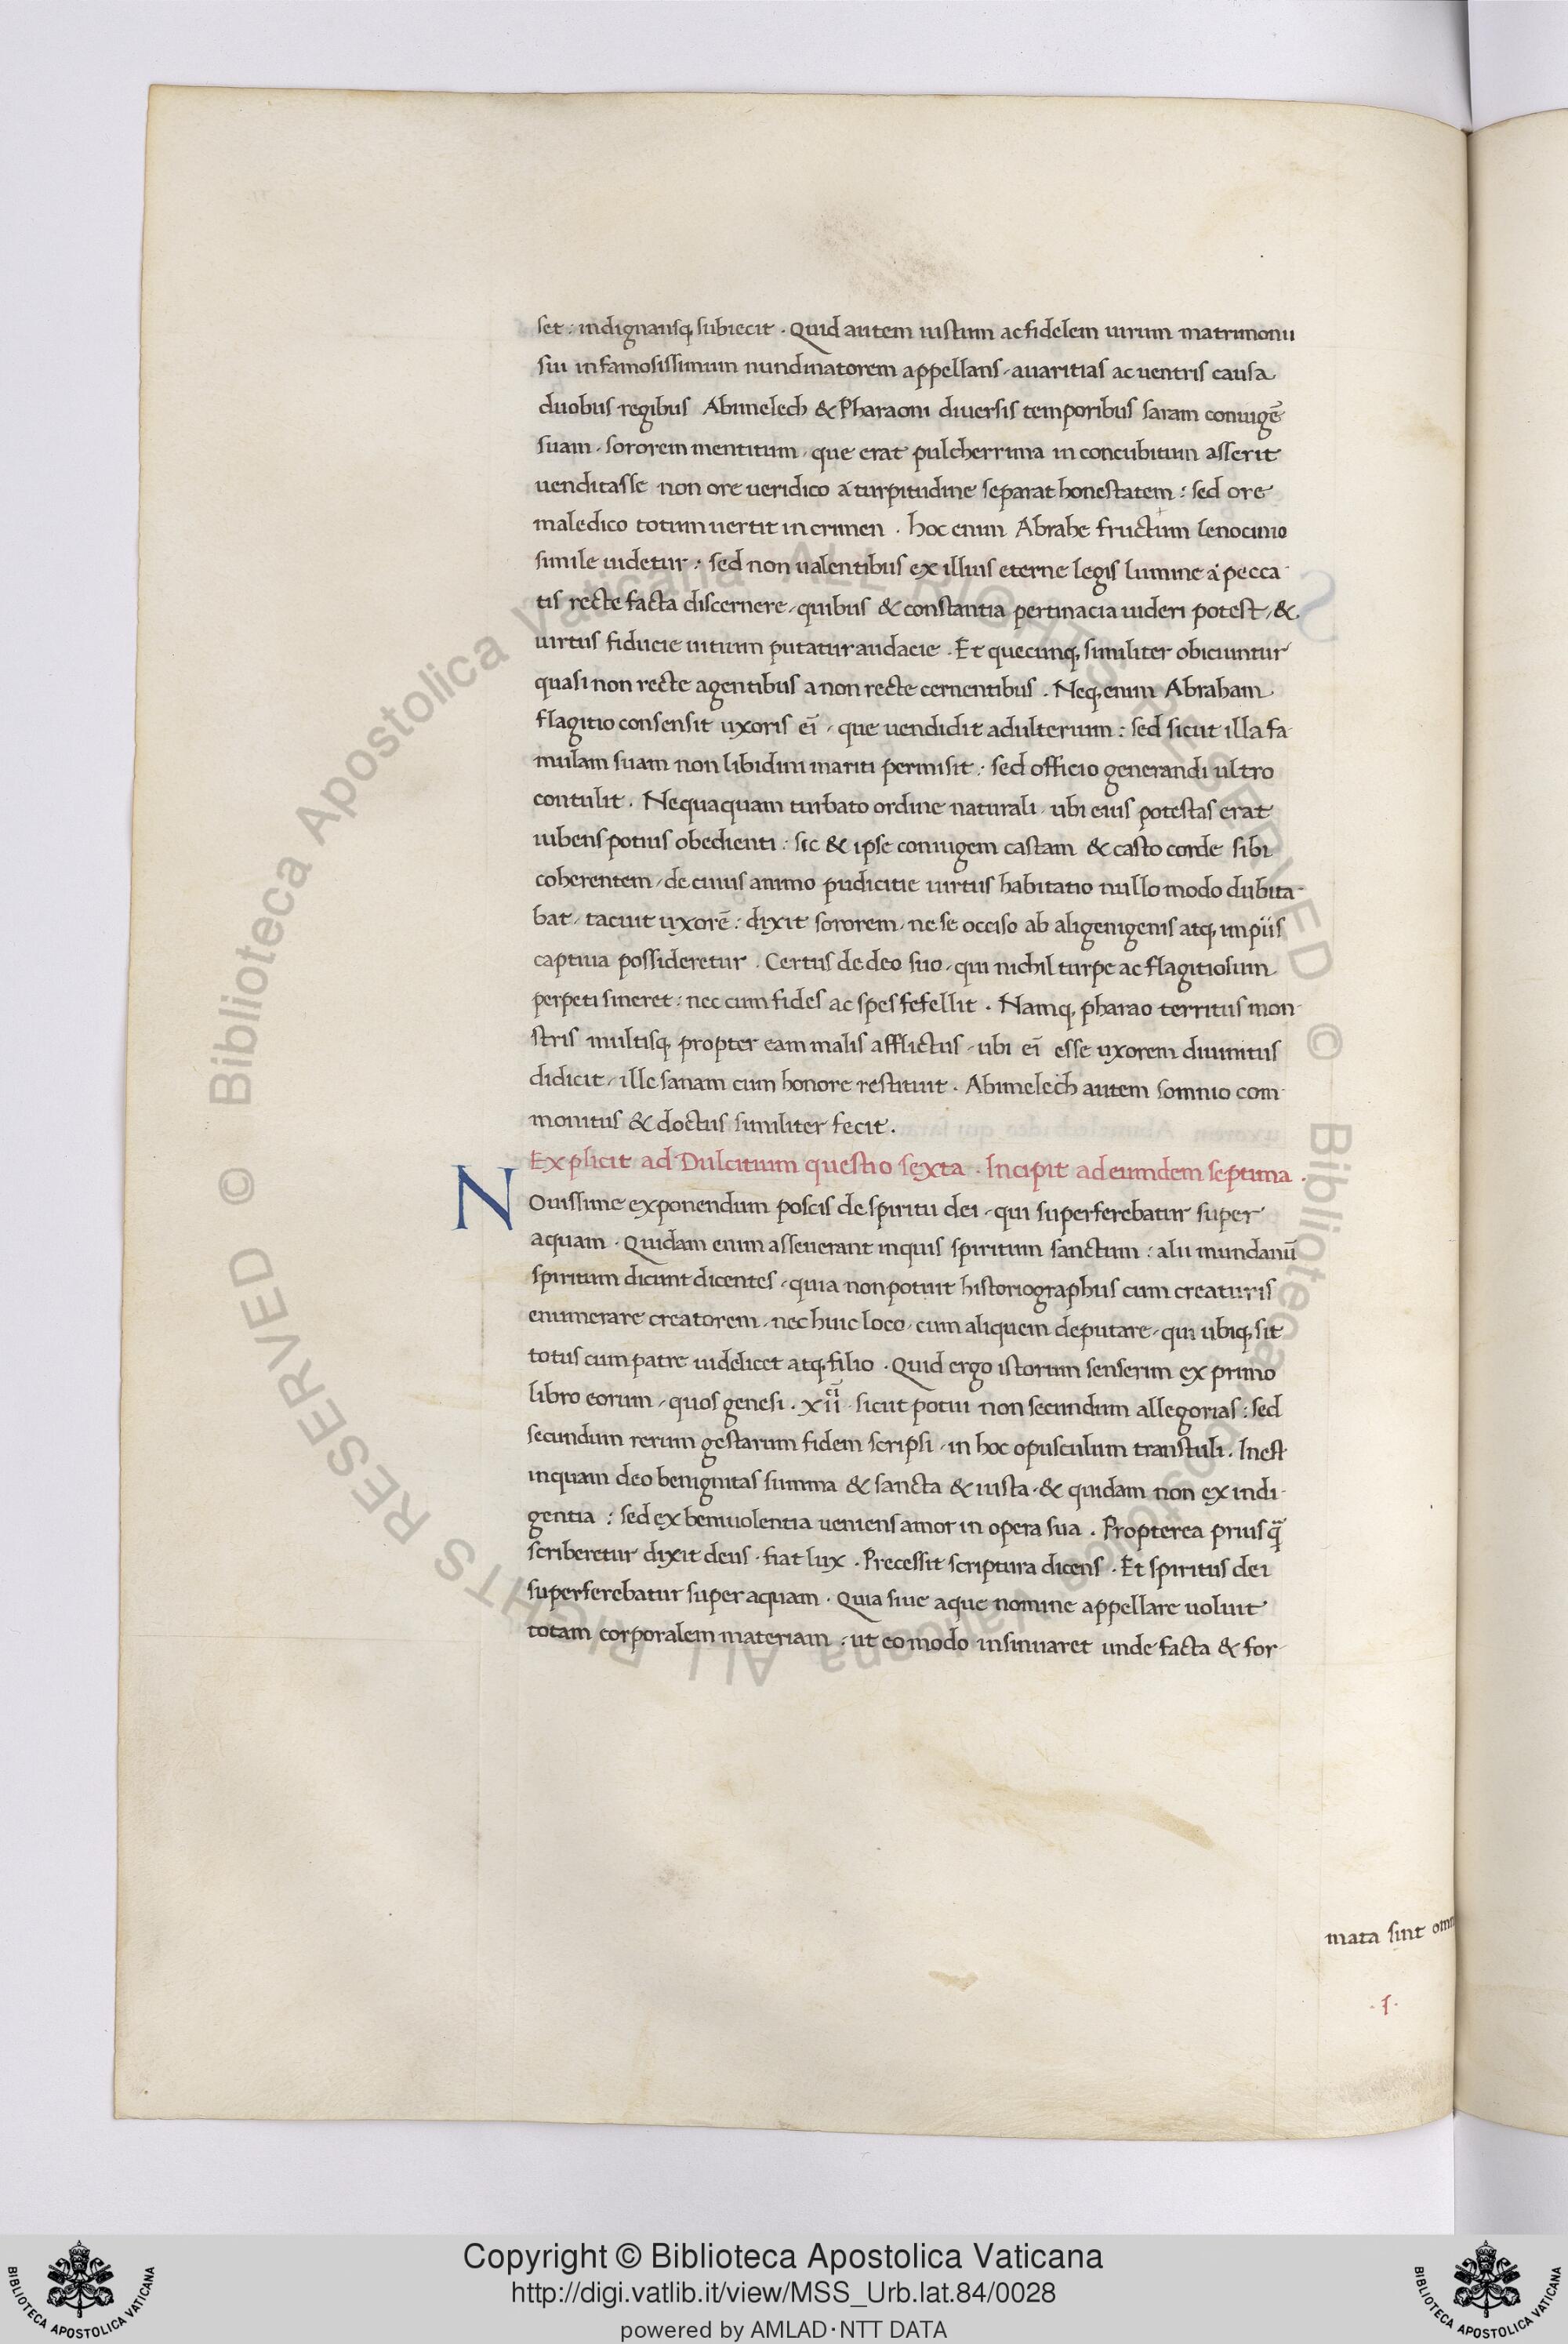 set : indignansq, subiecit . Quid autem iustum ac fidelem uirum matrimonii
sui infamosissimum nundinatorem appellans, auaritias ac uentris causa
duobus regibus Abimelech & Pharaoni diuersis temporibus saram coniugē
suam, sororem mentitum, que erat pulcherrima in concubitum asserit
uenditasse non ore ueridico a turpitudine separat honestatem : sed ore
maledico totum uertit in crimen . hoc enim Abrahe fructum lenocinio
simile uidetur : sed non ualentibus ex illius eterne legis lumine a pecca-
tis recte facta discernere, quibus & constantia pertinacia uideri potest, &
uirtus fiducie uitium putatur audacie . Et quecunq, similiter obiciuntur
quasi non recte agentibus a non recte cernentibus . Neq, enim Abraham
flagitio consensit uxoris eī, que uendidit adulterium : sed sicut illa fa-
mulam suam non libidini mariti permisit : sed officio generandi ultro
contulit . Nequaquam turbato ordine naturali, ubi eius potestas erat
iubens potius obedienti : sic & ipse coniugem castam & casto corde sibi
coherentem, de cuius animo pudicitie uirtus habitatio nullo modo dubita-
bat, tacuit uxorē : dixit sororem, ne se occiso ab aligenigenis atq, impiis
captiua possideretur . Certus de deo suo, qui nichil turpe ac flagitiosum
perpeti sineret : nec cum fides ac spes fefellit . Namq, pharao territus mon-
stris multisq, propter eam malis afflictus, ubi eī esse uxorem diuinitus
didicit, ille sanam cum honore restituit . Abimelech autem somnio com-
monitus & doctus similiter fecit .
Explicit ad Dulcitium questio sexta . Incipit ad eundem septima .
NOuissime exponendum poscis de spiritu dei, qui superferebatur super
aquam . Quidam enim asseuerant inquis spiritum sanctum : alii mundanū
spiritum dicunt dicentes, quia non potuit historiographus cum creaturis
enumerare creatorem, nec huic loco, cum aliquem deputare, qui ubiq, sit
totus cum patre uidelicet atq, filio . Quid ergo istorum senserim ex primo
libro eorum, quos genesi . xii sicut potui non secundum allegorias : sed
secundum rerum gestarum fidem scripsi, in hoc opusculum transtuli . Inest
inquam deo benignitas summa & sancta & iusta, & quidam non ex indi-
gentia : sed ex beniuolentia ueniens amor in opera sua . Propterea prius q̄
scriberetur dixit deus, fiat lux . Precessit scriptura dicens . Et spiritus dei
superferebatur super aquam . Quia siue aque nomine appellare uoluit
totam corporalem materiam : ut eo modo insinuaret unde facta & for-
mata sint
Copyright © Biblioteca Apostolica Vaticana
http://digi.vatlib.it/view/MSS_Urb.lat.84/0028
powered by AMLAD·NTT DATA
BIBLIOTECA APOSTOLICA VATICANA
BIBLIOTECA APOSTOLICA VATICANA
© Biblioteca Apostolica Vaticana ALL RIGHTS RESERVED © Biblioteca Apostolica Vaticana ALL RIGHTS RESERVED